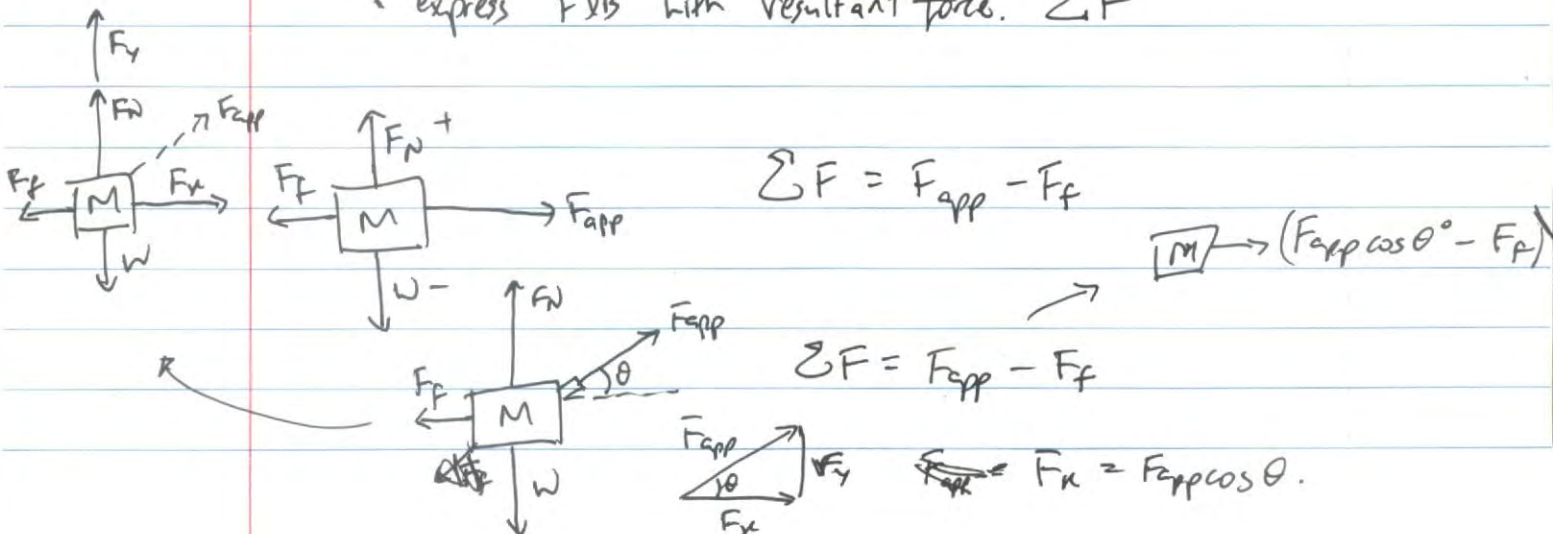 express FBDs with resultant force. ΣF
Fy
FN
Fapp
Ff
M
Fx
W
FN +
Ff
M
Fapp
W -
ΣF = Fapp - Ff
M → (Fapp cos θ° - Ff)
FN
Fapp
θ
Ff
M
W
ΣF = Fapp - Ff
Fapp
θ
Fy
Fx
Fx = Fapp cos θ.